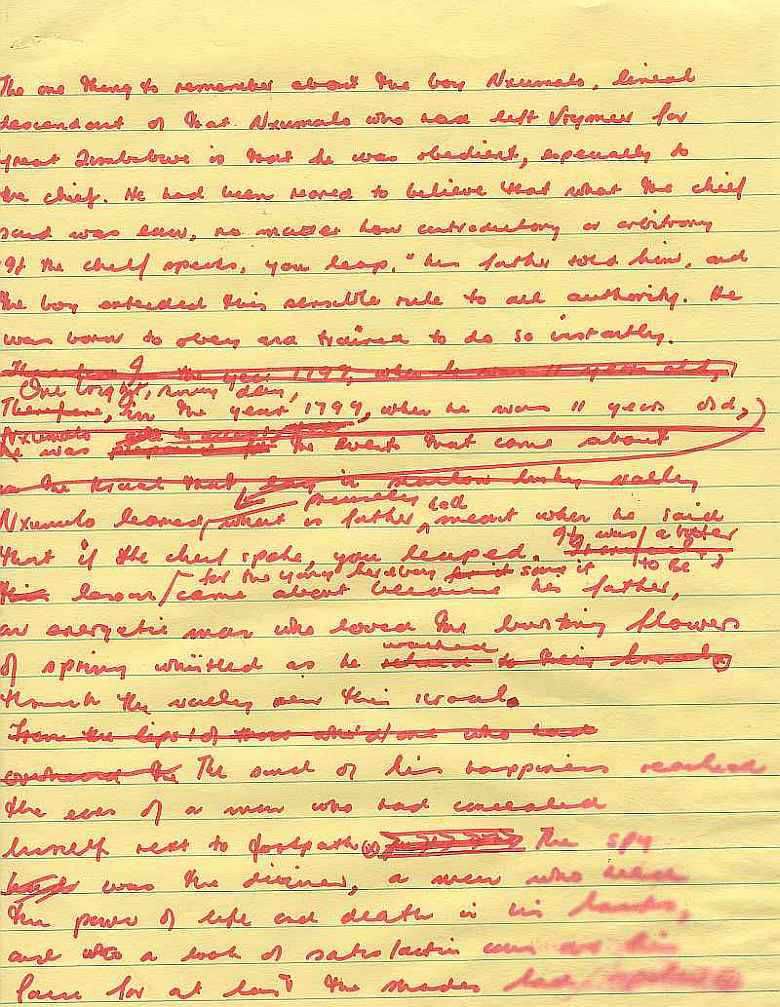 The one thing to remember about the boy Nxumalo, lineal
descendant of that Nxumalo who had left Vrymeer for
great Zimbabwe is that he was obedient, especially to
the chief. He had been reared to believe that what the chief
said was law, no matter how contradictory or arbitrary
"If the chief speaks, you leap," his father told him, and
the boy extended this sensible rule to all authority. He
was born to obey and trained to do so instantly.
the year 1799, when he was 11 years old,
One day,
Therefore, in the year 1799, when he was 11 years old,
Nxumalo
he was the event that came about
in the kraal that, valley
precisely had
Nxumalo learned what is father meant when he said
that if the chief spoke, you leaped. It was a bitter
for the young boy to be
lesson came about because his father,
an energetic man who loved the bursting flowers
walked
of spring whistled as he
through the valley near their kraal.
From the lips of those who had
The sound of his happiness reached
the ears of a man who had concealed
himself next to footpath The spy
was the diviner, a man who held
the power of life and death in his hands,
and a look of satisfaction his
face for at last the shades had